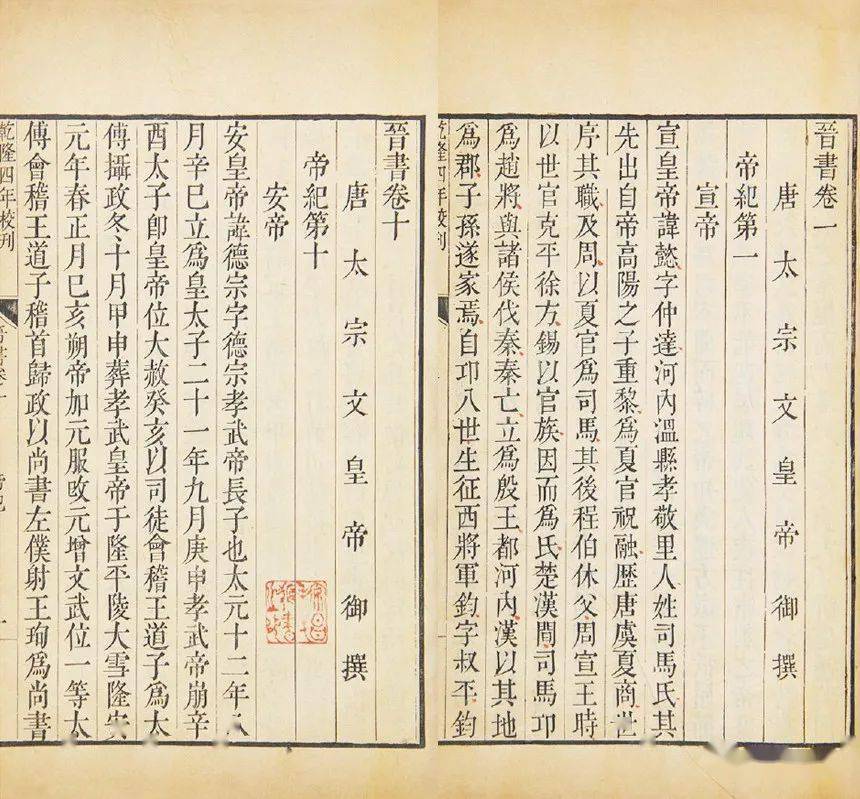 晉書卷一
唐太宗文皇帝御撰
帝紀第一
宣帝
宣皇帝諱懿字仲達河內溫縣孝敬里人姓司馬氏其
先出自帝高陽之子重黎爲夏官祝融歷唐虞夏商世
序其職及周以夏官爲司馬其後程伯休父周宣王時
以世官克平徐方錫以官族因而爲氏楚漢間司馬卬
爲趙將與諸侯伐秦秦亡立爲殷王都河內漢以其地
爲郡子孫遂家焉自卬八世生征西將軍鈞字叔平鈞
乾隆四年校刊
晉書卷十
唐太宗文皇帝御撰
帝紀第十
安帝
安皇帝諱德宗字德宗孝武帝長子也太元十二年八
月辛巳立爲皇太子二十一年九月庚申孝武帝崩辛
酉太子卽皇帝位大赦癸亥以司徒會稽王道子爲太
傅攝政冬十月甲申葬孝武皇帝于隆平陵大雪隆安
元年春正月己亥朔帝加元服改元增文武位一等太
傅會稽王道子稽首歸政以尚書左僕射王珣爲尚書
乾隆四年校刊
晉書卷十